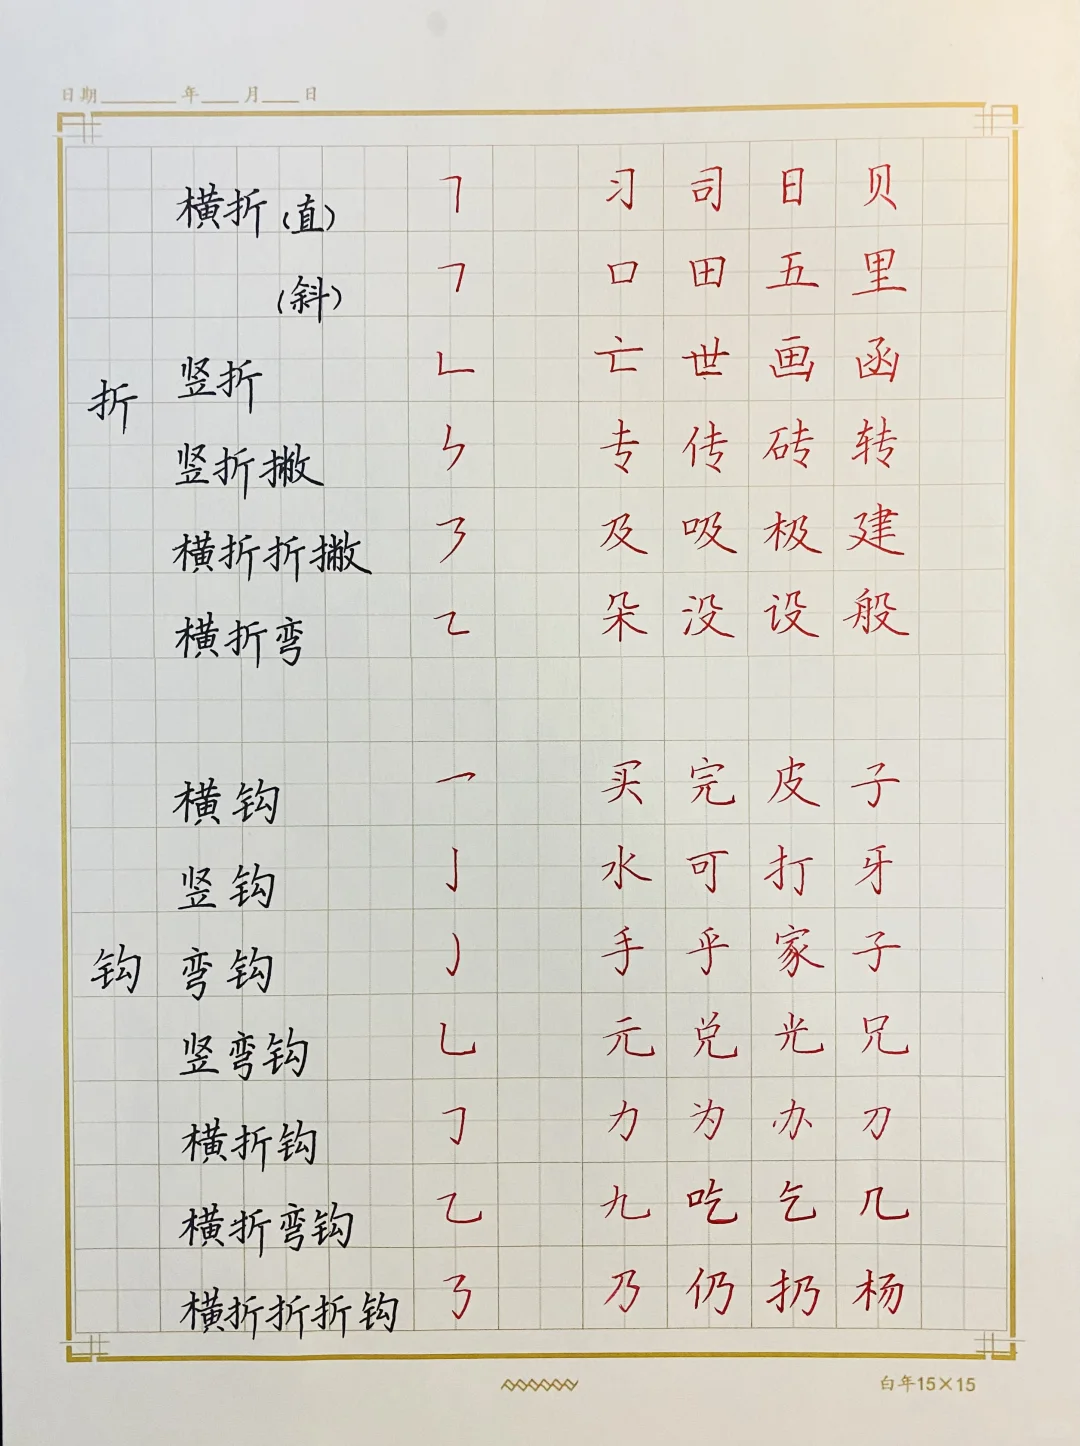 日期 年 月 日
横折(直) ㇕ 习 司 日 贝
(斜) ㇕ 口 田 五 里
折
竖折 ㇗ 亡 世 画 函
竖折撇 ㇞ 专 传 砖 转
横折折撇 ㇋ 及 吸 极 建
横折弯 ㇍ 朵 没 设 般
横钩 ㇖ 买 完 皮 子
竖钩 亅 水 可 打 牙
钩
弯钩 ㇁ 手 乎 家 子
竖弯钩 乚 元 兑 光 兄
横折钩 ㇆ 力 为 办 刀
横折弯钩 ㇈ 九 吃 乞 几
横折折折钩 ㇡ 乃 仍 扔 杨
白年15×15